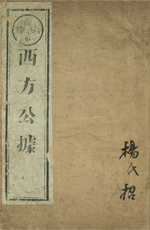 西方公據
楊氏招